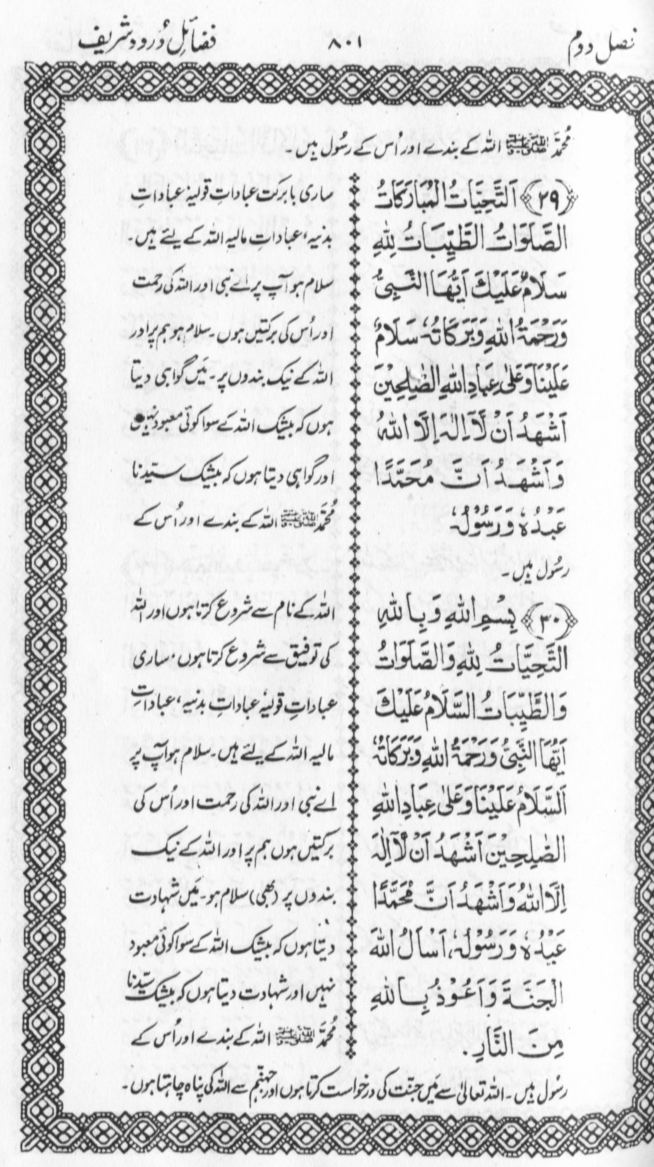 فصل دوم
۸۰۱
فضائل درود شریف
مُحَمَّد ﷺ اللہ کے بندے اور اُس کے رسُول ہیں۔
﴿۲۹﴾ اَلتَّحِيَّاتُ الْمُبَارَكَاتُ
الصَّلَوَاتُ الطَّيِّبَاتُ لِلّٰهِ
سَلَامٌ عَلَيْكَ اَيُّهَا النَّبِىُّ
وَرَحْمَةُ اللّٰهِ وَبَرَكَاتُهٗ، سَلَامٌ
عَلَيْنَا وَعَلٰى عِبَادِ اللّٰهِ الصّٰلِحِيْنَ
اَشْهَدُ اَنْ لَّآ اِلٰهَ اِلَّا اللّٰهُ
وَاَشْهَدُ اَنَّ مُحَمَّدًا
عَبْدُهٗ وَرَسُوْلُهٗ،
ساری بابرکت عباداتِ قولیہ عباداتِ
بدنیہ، عباداتِ مالیہ اللہ کے لیئے ہیں۔
سلام ہو آپ پر اے نبی اور اللہ کی رحمت
اور اُس کی برکتیں ہوں۔ سلام ہو ہم پر اور
اللہ کے نیک بندوں پر۔ مَیں گواہی دیتا
ہوں کہ بیشک اللہ کے سوا کوئی معبود نہیں
اور گواہی دیتا ہوں کہ بیشک سیّدنا
مُحَمَّد ﷺ اللہ کے بندے اور اُس کے
رسُول ہیں۔
﴿۳۰﴾ بِسْمِ اللّٰهِ وَبِاللّٰهِ
التَّحِيَّاتُ لِلّٰهِ وَالصَّلَوَاتُ
وَالطَّيِّبَاتُ السَّلَامُ عَلَيْكَ
اَيُّهَا النَّبِىُّ وَرَحْمَةُ اللّٰهِ وَبَرَكَاتُهٗ
اَلسَّلَامُ عَلَيْنَا وَعَلٰى عِبَادِ اللّٰهِ
الصّٰلِحِيْنَ اَشْهَدُ اَنْ لَّآ اِلٰهَ
اِلَّا اللّٰهُ وَاَشْهَدُ اَنَّ مُحَمَّدًا
عَبْدُهٗ وَرَسُوْلُهٗ، اَسْاَلُ اللّٰهَ
الْجَنَّةَ وَاَعُوْذُ بِاللّٰهِ
مِنَ النَّارِ.
اللہ کے نام سے شروع کرتا ہوں اور اللہ
کی توفیق سے شروع کرتا ہوں۔ ساری
عباداتِ قولیہ عباداتِ بدنیہ، عباداتِ
مالیہ اللہ کے لیئے ہیں۔ سلام ہو آپ پر
اے نبی اور اللہ کی رحمت اور اُس کی
برکتیں ہوں ہم پر اور اللہ کے نیک
بندوں پر (بھی) سلام ہو۔ مَیں شہادت
دیتا ہوں کہ بیشک اللہ کے سوا کوئی معبود
نہیں اور شہادت دیتا ہوں کہ بیشک سیّدنا
مُحَمَّد ﷺ اللہ کے بندے اور اُس کے
رسُول ہیں۔ اللہ تعالیٰ سے مَیں جنّت کی درخواست کرتا ہوں اور جہنّم سے اللہ کی پناہ چاہتا ہوں۔